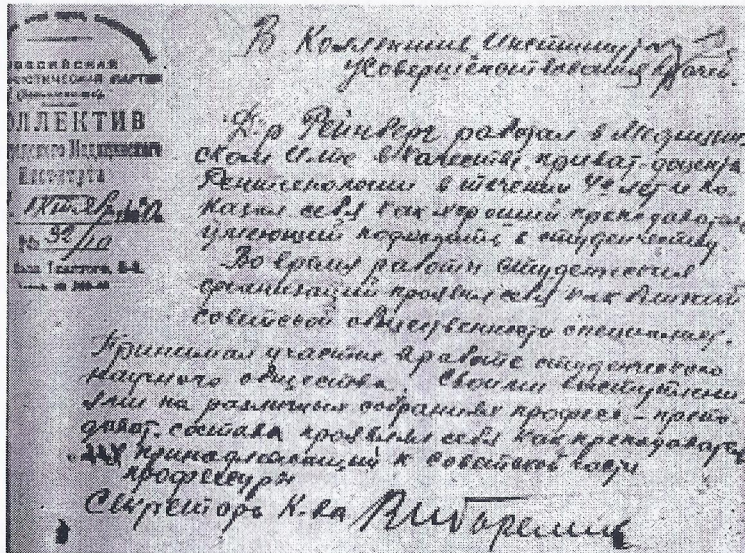 КОЛЛЕКТИВ
Медицинского
Института
№ 92/10
В Коллектив Института
усовершенствования врачей
Д-р Рейнберг работал в Медицин-
ском Ин-те в качестве приват-доцента
Рентгенологии в течении 4х лет и по-
казал себя как хороший преподаватель
умеющий подойти к студенчеству.
Во время работы студенческих
организаций проявил себя как близкий
советской общественности специалист.
Принимал участие в работе студенческого
научного общества. Своими выступлени-
ями на различных собраниях професс.-препо-
доват. состава проявил себя как преподаватель
принадлежащий к советской части
профессуры
Секретарь К-ва